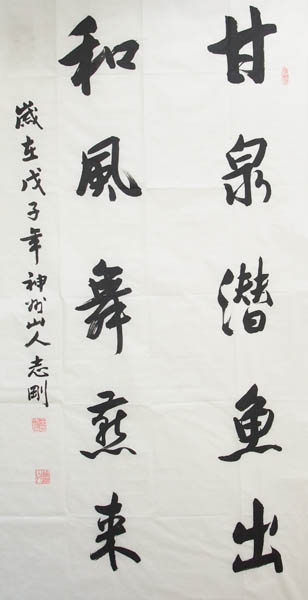 甘泉潜魚出
和風舞燕来
歳在戊子年神州山人志剛